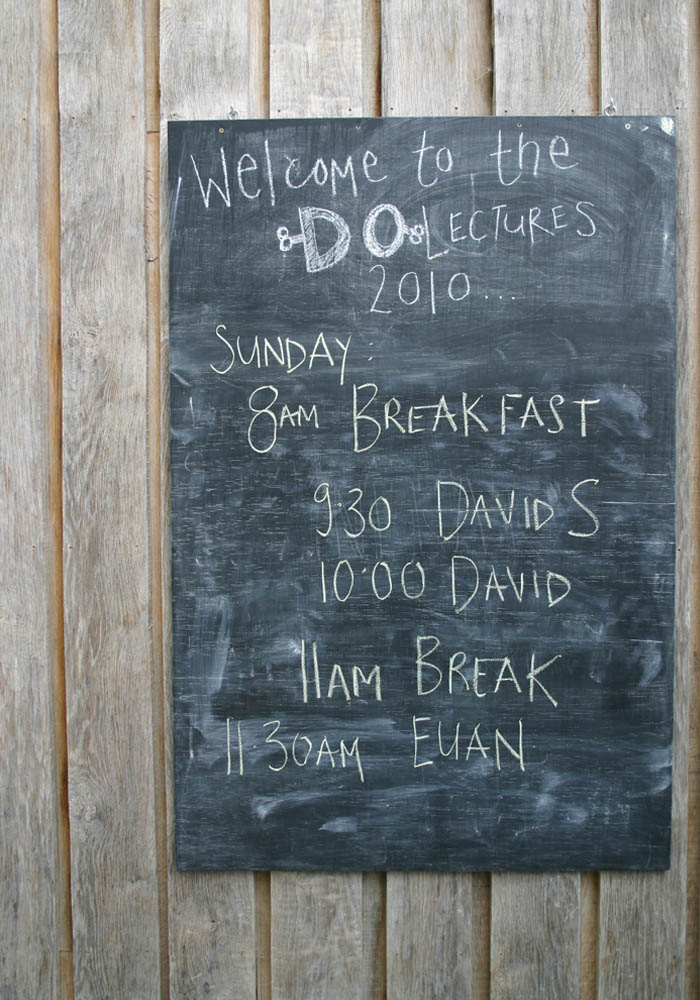 Welcome to the
DO LECTURES
2010...
SUNDAY:
8AM BREAKFAST
9.30 DAVID S
10.00 DAVID
11AM BREAK
11.30AM EUAN